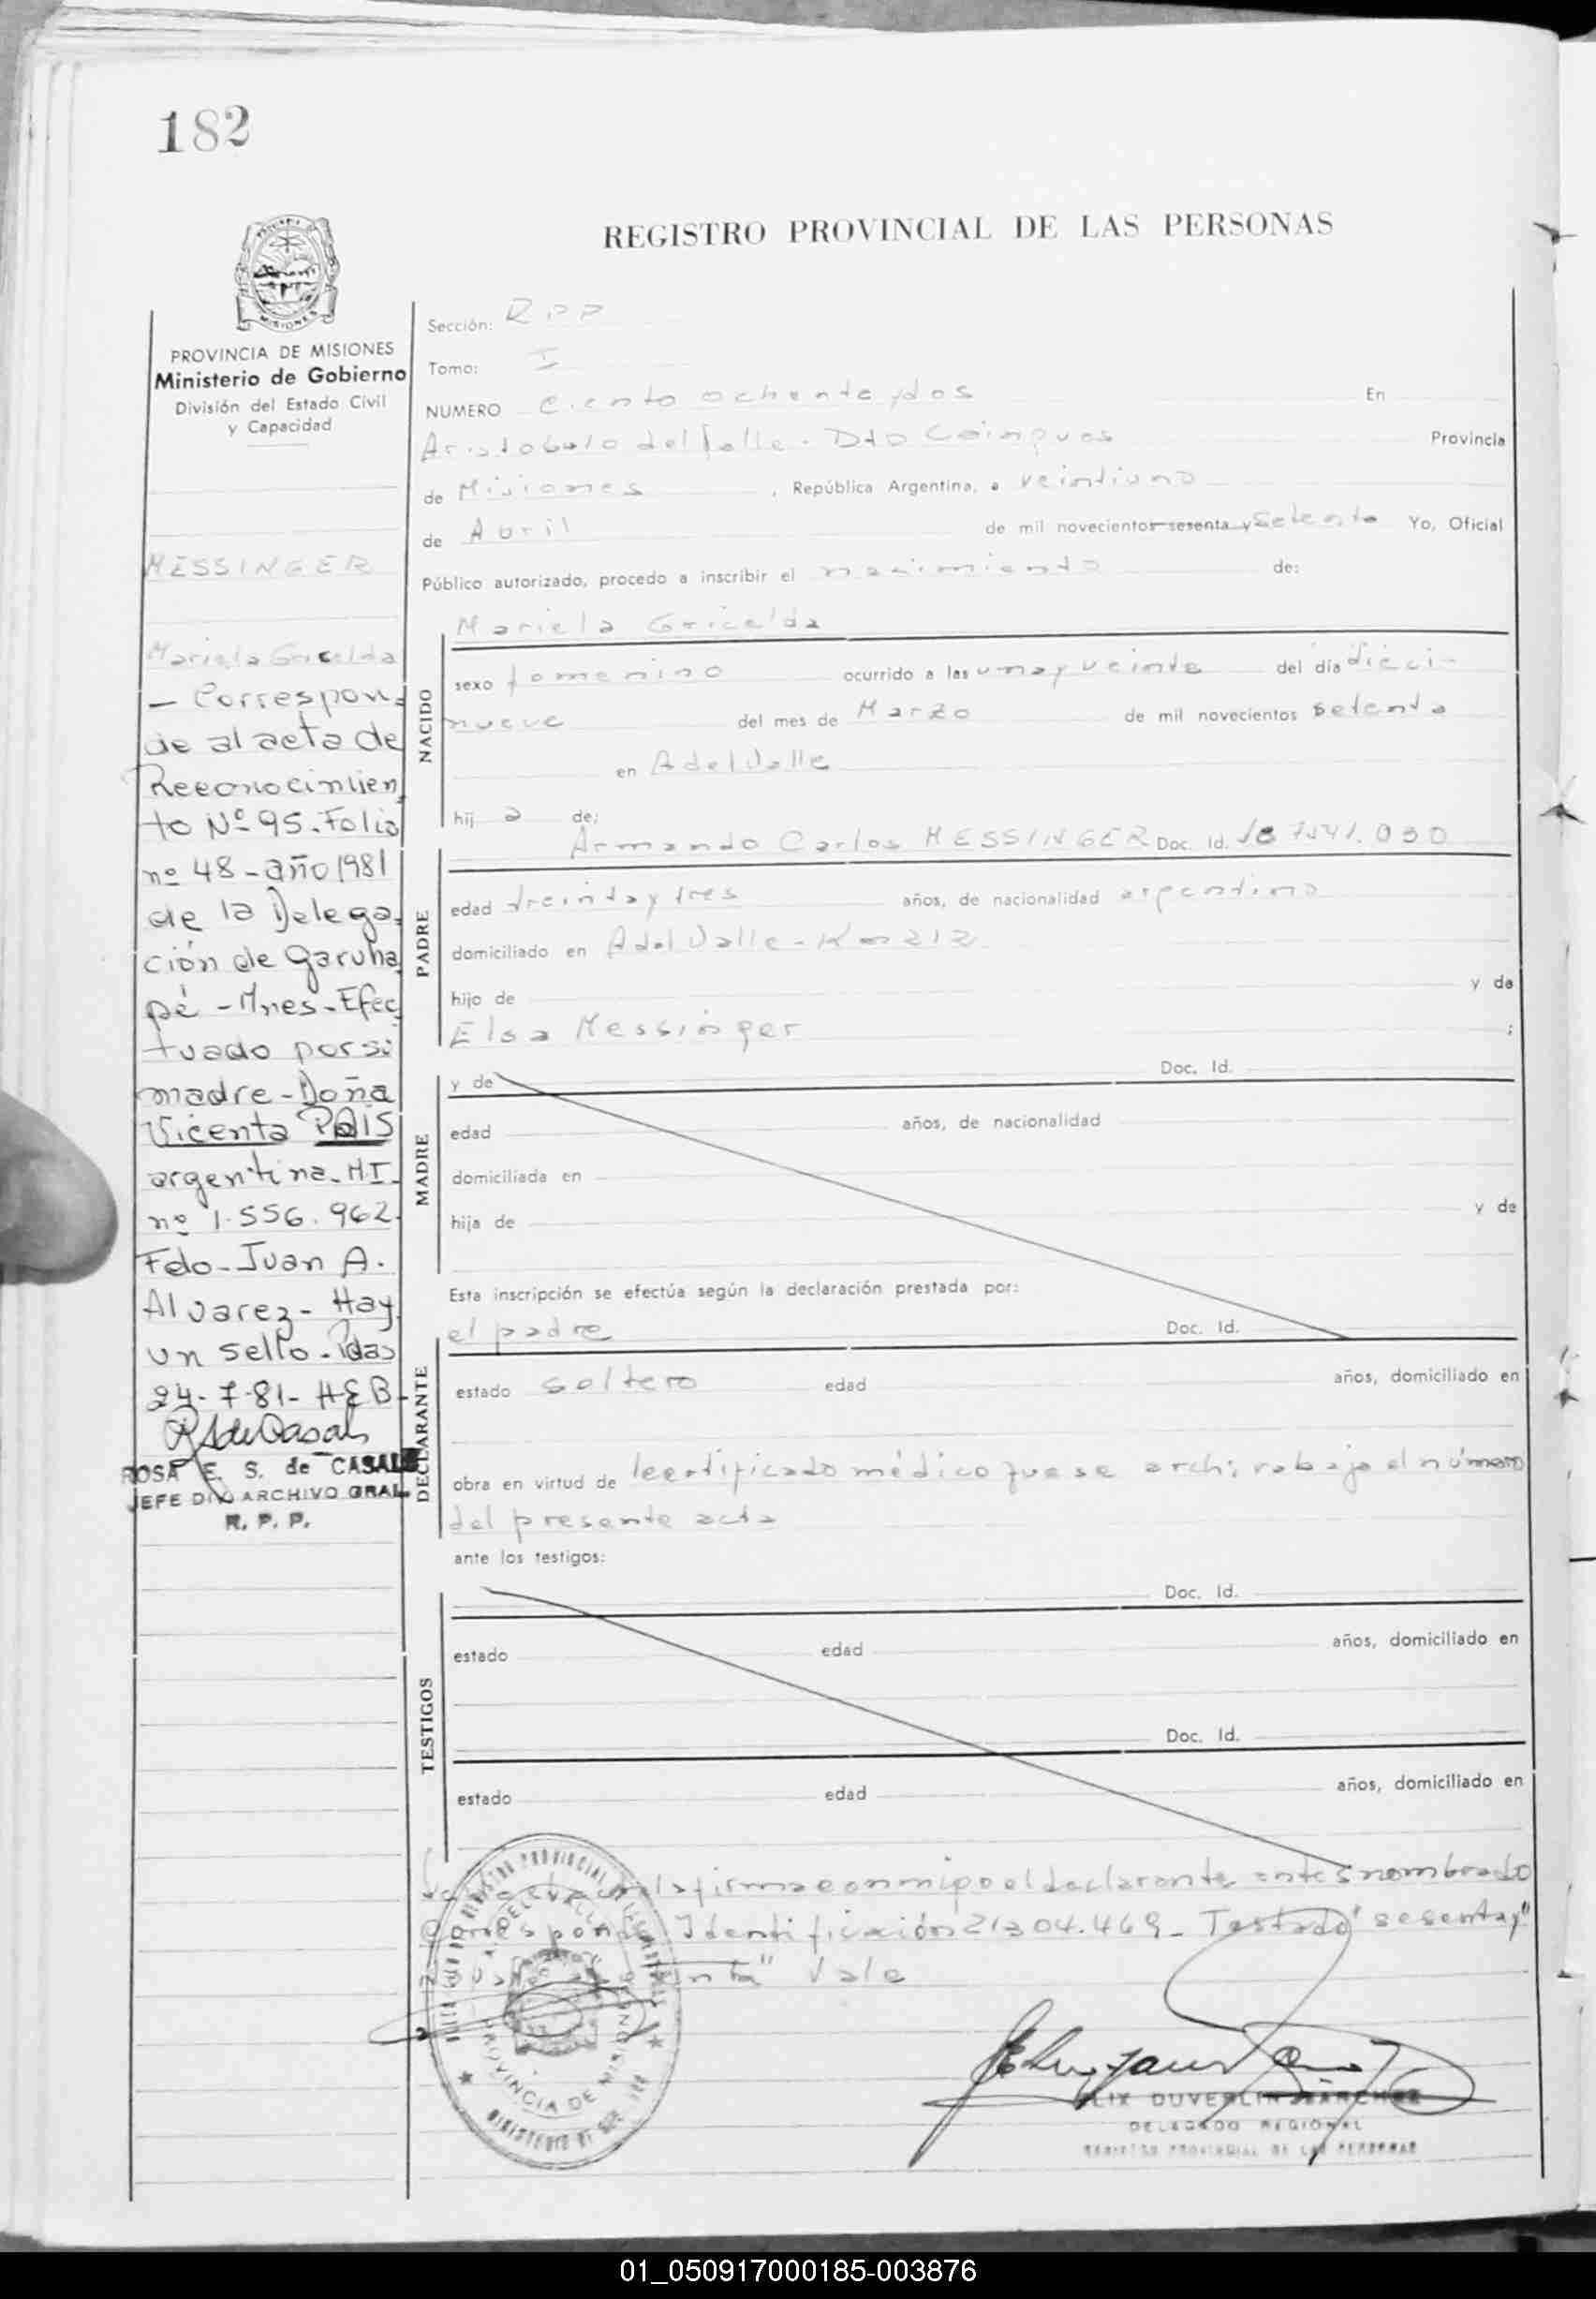 182
REGISTRO PROVINCIAL DE LAS PERSONAS
MISIONES
PROVINCIA DE MISIONES
Ministerio de Gobierno
División del Estado Civil
y Capacidad
MESSINGER
Mariela Gricelda
- Correspon-
de al acta de
Reconocimien
to Nº 95. Folio
nº 48 - año 1981
de la Delega
ción de Garuha
pé - Mnes - Efec
tuado por si
madre - Doña
Vicenta PAIS
argentina - M.I.
nº 1.556.962
Fdo - Juan A.
Alvarez - Hay
un sello - Pdas
24-7-81 - HEB -
ROSA E. S. de CASALS
JEFE DIV ARCHIVO GRAL.
R. P. P.
Sección: RPP
Tomo: I
NUMERO Ciento ochenta y dos En
Aristobulo del Valle - Dto Cainguas Provincia
de Misiones , República Argentina, a veintiuno
de Abril de mil novecientos sesenta y setenta Yo, Oficial
Público autorizado, procedo a inscribir el nacimiento de:
Mariela Gricelda
NACIDO
sexo femenino ocurrido a las una y veinte del día dieci-
nueve del mes de Marzo de mil novecientos setenta
en A del Valle
hij a de:
Armando Carlos MESSINGER Doc. Id. 7541.030
PADRE
edad treinta y tres años, de nacionalidad argentino
domiciliado en A del Valle - Km 212
hijo de y de
Elsa Messinger ;
MADRE
y de Doc. Id.
edad años, de nacionalidad
domiciliada en
hija de y de
Esta inscripción se efectúa según la declaración prestada por:
el padre Doc. Id.
DECLARANTE
estado soltero edad años, domiciliado en
obra en virtud de certificado médico que se archiva bajo el número
del presente acta
ante los testigos:
Doc. Id.
TESTIGOS
estado edad años, domiciliado en
Doc. Id.
estado edad años, domiciliado en
la firma conmigo el declarante antes nombrado
Identificación 21304.469 - Testado "sesenta y"
Vale
PROVINCIA DE MISIONES
DELEGADO REGIONAL
REGISTRO PROVINCIAL DE LAS PERSONAS
01_050917000185-003876